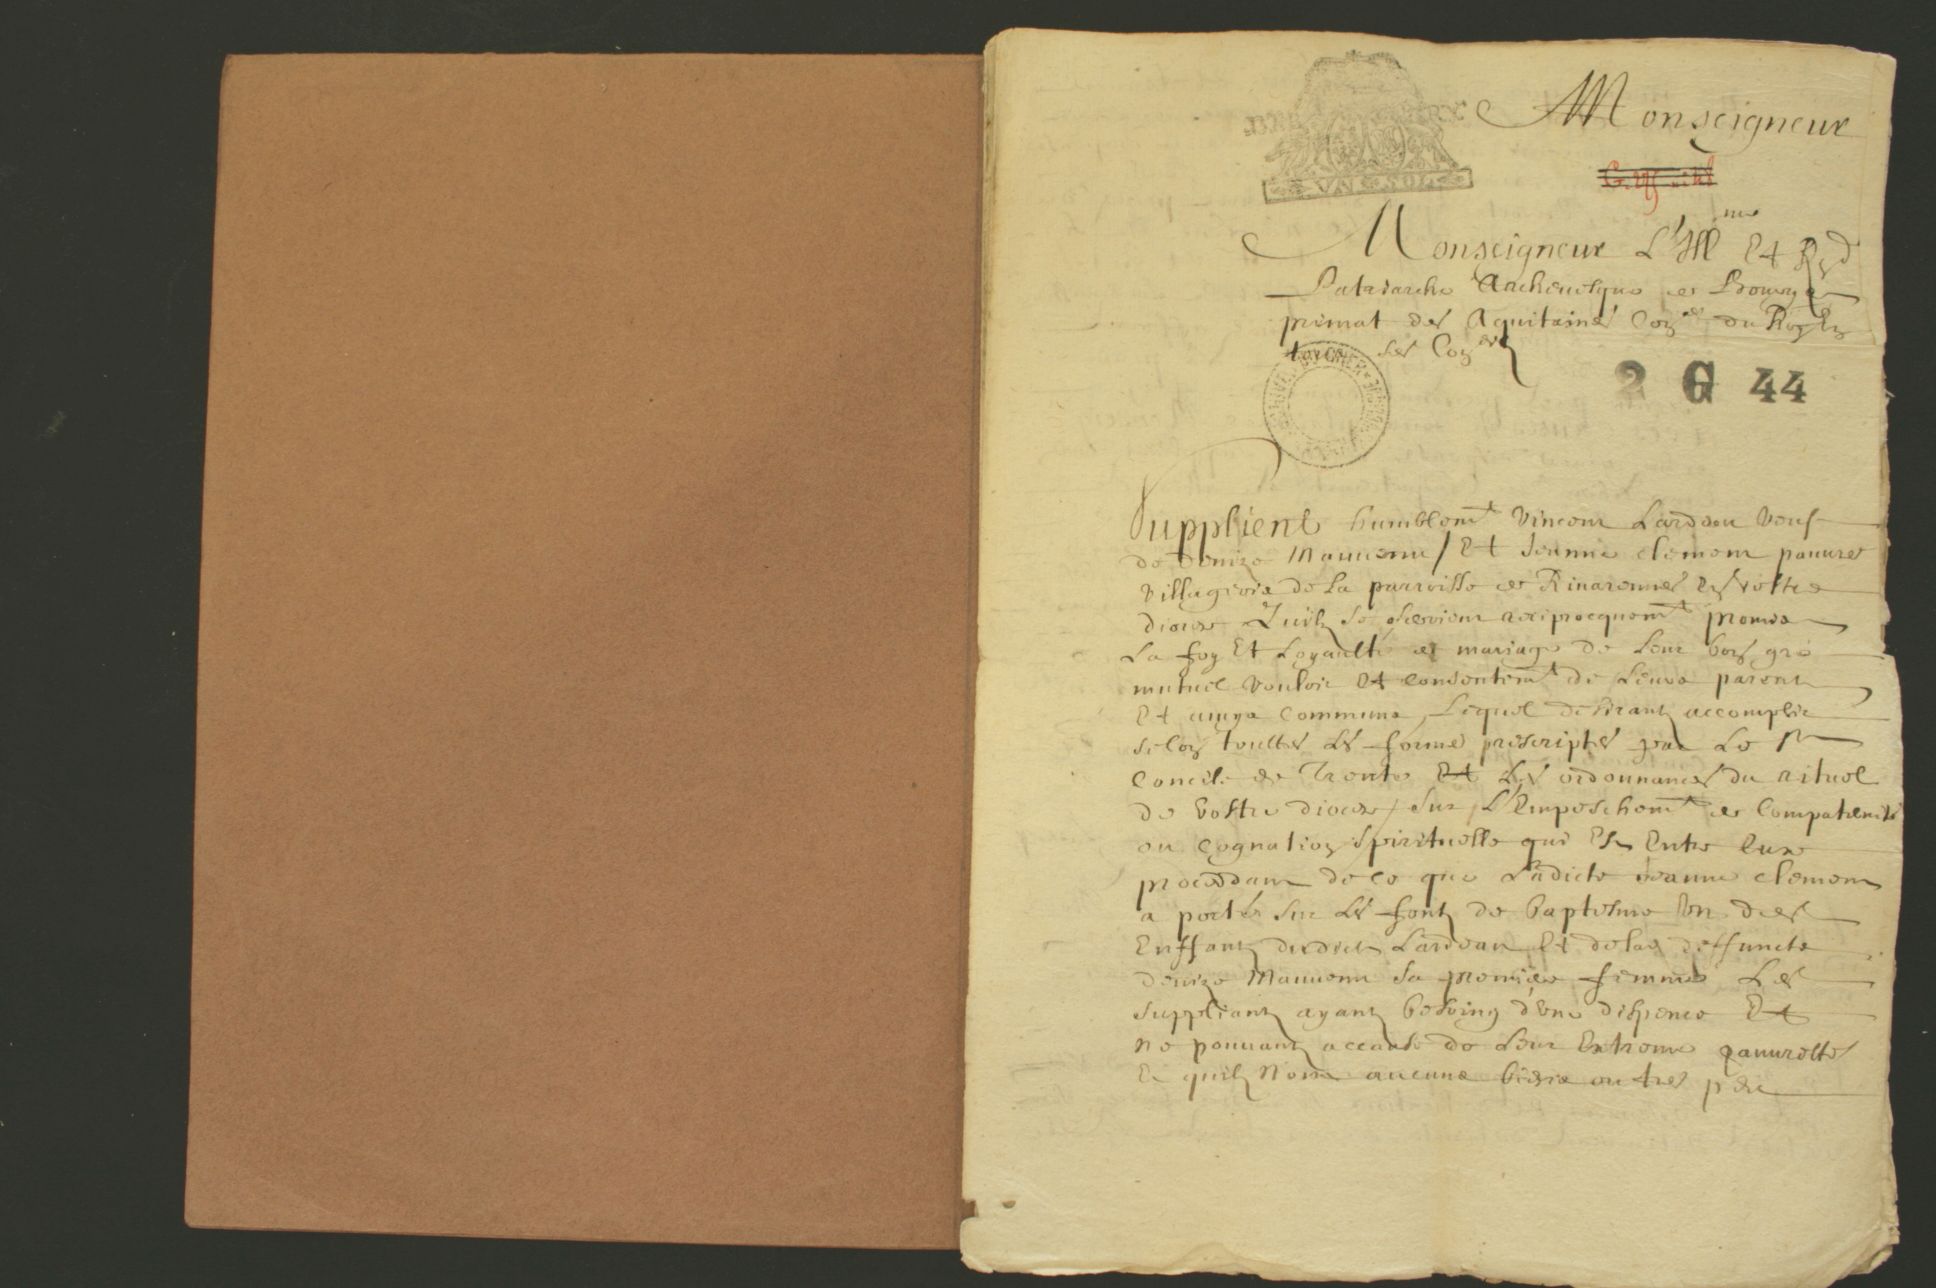 Monseigneur
VN SOL
Monseigneur L'Ill me Et R d
Patriarche Archevesque de Bourges
primat des Aquitaines Con er du Roy En
tous ses Con
2 G 44
Supplient humblem t Vincent Lardeau veuf
de Denize Mauvenu / Et Jeanne clement pauvres
villageois de La parroisse de Rivarennes En vostre
diocese Quilz se seroient reciprocquem t promis
La foy Et Loyaulté de mariage de Leur bon gré
mutuel vouloir Et consentem t de Leurs parentz
Et amys communs, Lequel desirantz accomplir
selon touttes Les formes prescriptes par Le S t
Concile de Trente Et Les ordonnances du rituel
de vostre diocese, sur L'Empeschem t de Compaternité
ou Cognation spirituelle qui Est Entre Eux
procedant de ce que Ladicte Jeanne clement
a porté sur Les fontz de baptesme Un des
Enffantz dudict Lardeau Et de la deffuncte
Denize Mauvenu sa premiere femme Les
suppliantz ayantz besoing d'une dispence Et
ne pouvantz accause de Leur Extreme pauvretté
Et quilz Nont aucuns biens outres par